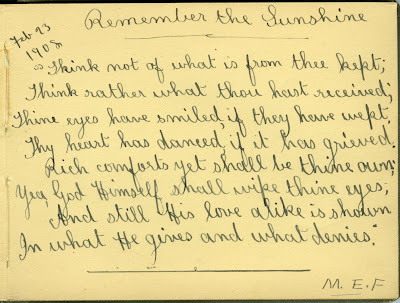 Remember the Sunshine
Feb 23
1908
"Think not of what is from thee kept;
Think rather what thou hast received;
Thine eyes have smiled, if they have wept,
Thy heart has danced, if it has grieved.
Rich comforts yet shall be thine own;
Yea, God Himself shall wipe thine eyes;
And still His love alike is shown
In what He gives and what denies."
M. E. F